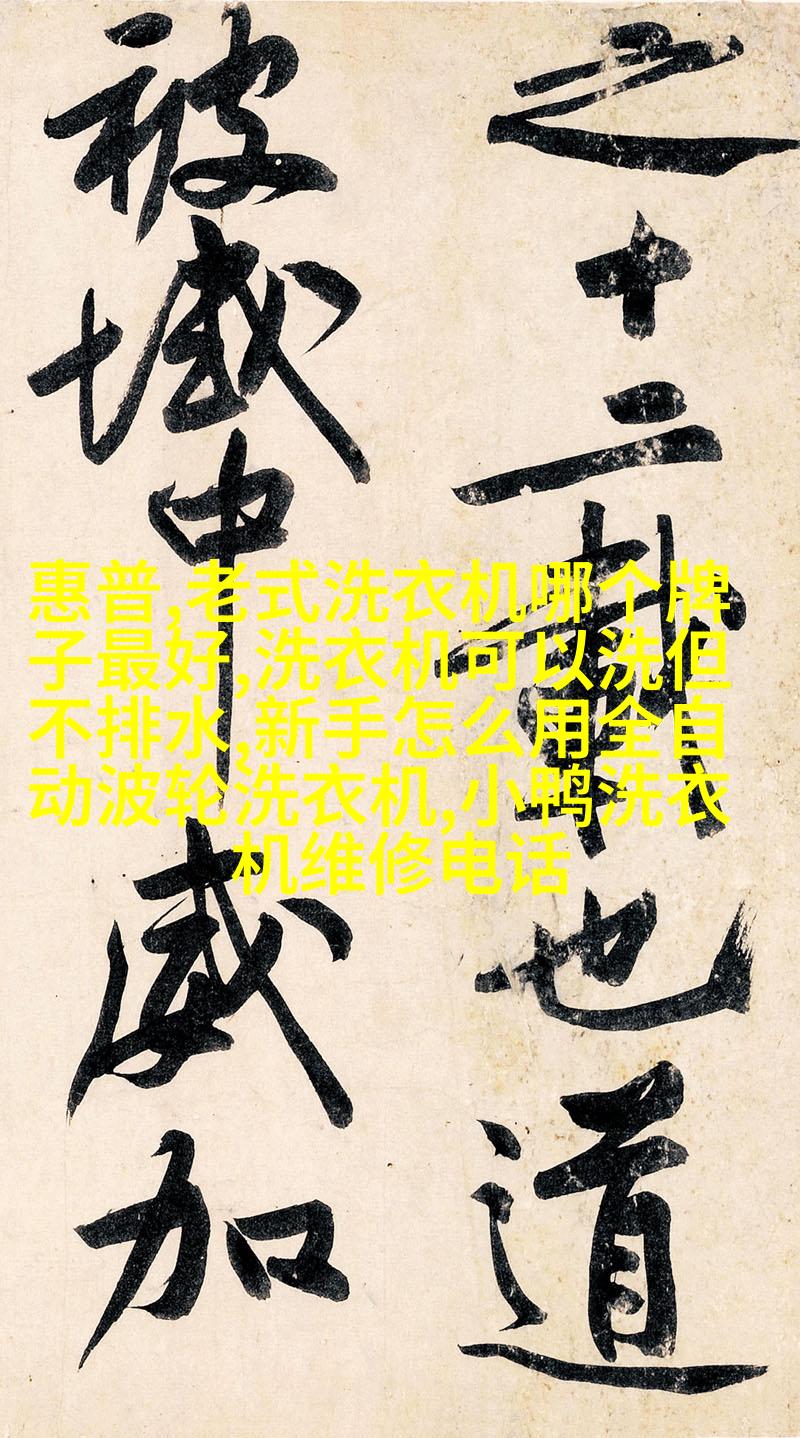 之十二載也道
被域中威加
惠普,老式洗衣机哪个牌
子最好,洗衣机可以洗但
不排水,新手怎么用全自
动波轮洗衣机,小鸭洗衣
机维修电话